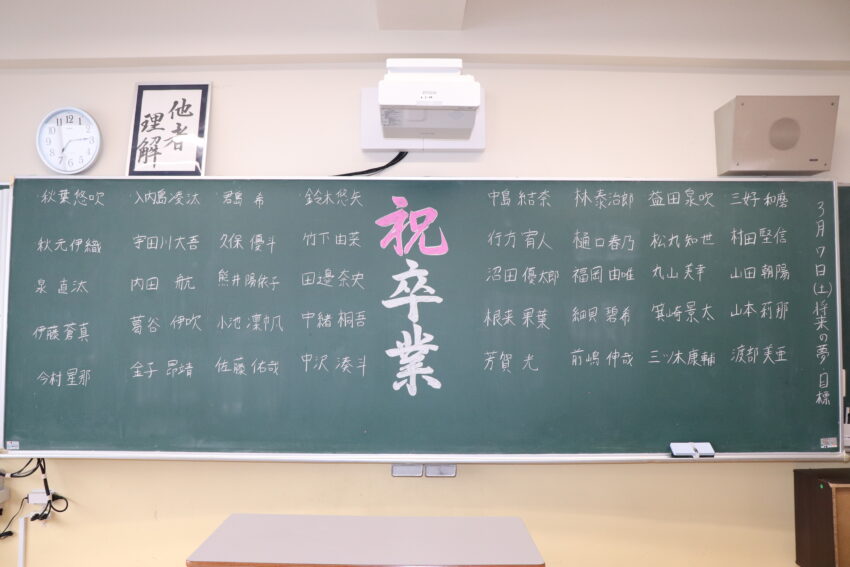 他者
理解
EPSON
3月7日(土)将来の夢・目標
祝卒業
秋葉悠吹 入内島凌汰 君島希 鈴木悠矢
秋元伊織 宇田川大吾 久保優斗 竹下由英
泉直汰 内田航 熊井陽依子 田邉奈央
伊藤蒼真 葛谷伊吹 小池凜帆 中緒桐吾
今村星那 金子昂靖 佐藤佑哉 中沢湊斗
中島結奈 林泰治郎 益田泉吹 三好和磨
行方宥人 樋口春乃 松丸知世 村田堅信
沼田優太郎 福岡由唯 丸山芙幸 山田朝陽
根来果葉 細貝碧希 箕崎景太 山本莉那
芳賀光 前嶋伸哉 三ツ木康輔 渡部美亜